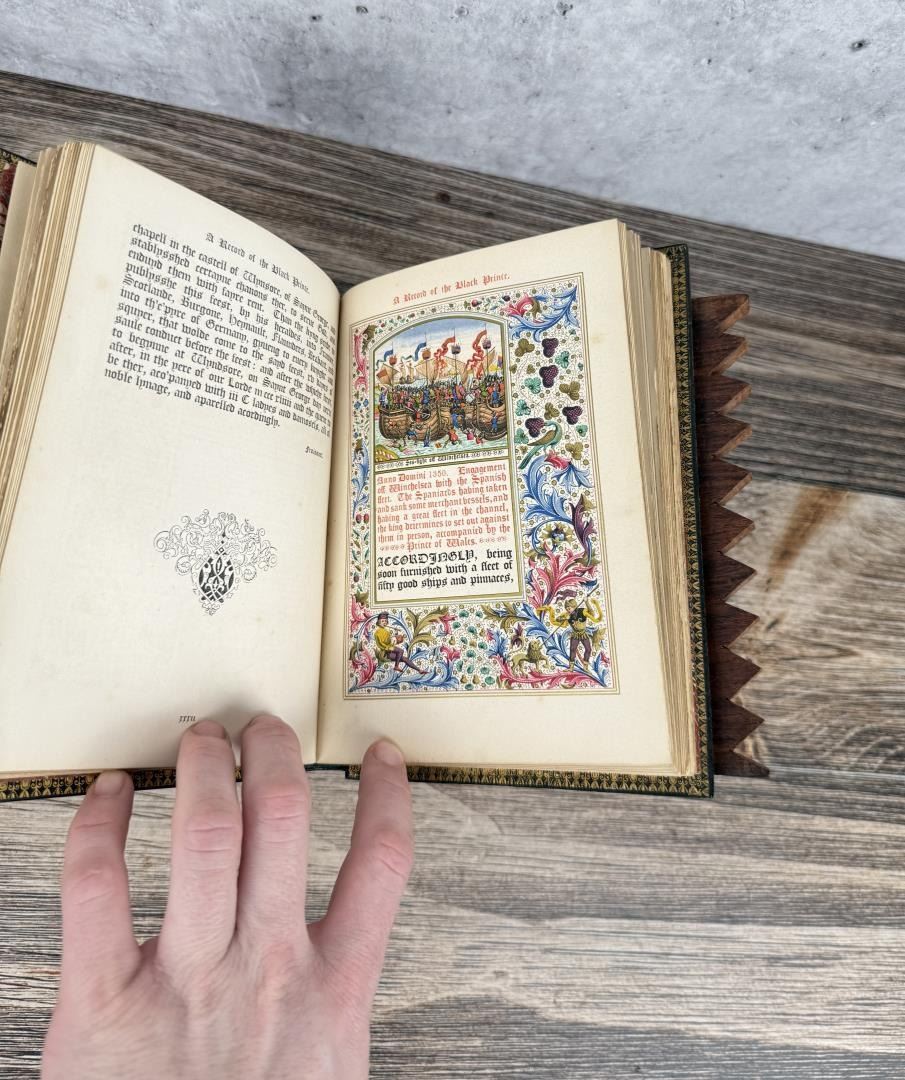 A Record of the Black Prince.
chapell in the castell of Wynsore, of Saynt George, and
stablysshed certayne chanons ther, to serue God, and
enduyd them with fayre rent. Than the kyng sende to
publysshe this feest, by his heraldes, into Fraunce,
Scotlande, Burgone, Heynault, Flaunders, Brabant, and
into th'e'pyre of Germany, gyueng to euery knyght and
squyer, that wolde come to the sayd feest, dayes of
saufe conduct before the feest: and after the whiche feest
to begynne at Wyndsore, on Saynt George day next
after, in the yere of our Lorde m ccc xliiii and the quene to
be ther, aco'panyed with iii C ladyes and damosels, all of
noble lynage, and aparelled acordingly.
Froissart.
A Record of the Black Prince.
Sea-fight off Winchelsea.
Anno Domini 1350. Engagement
off Winchelsea with the Spanish
fleet. The Spaniards having taken
and sank some merchant vessels, and
having a great fleet in the channel,
the king determines to set out against
them in person, accompanied by the
Prince of Wales.
ACCORDINGLY, being
soon furnished with a fleet of
fifty good ships and pinnaces,